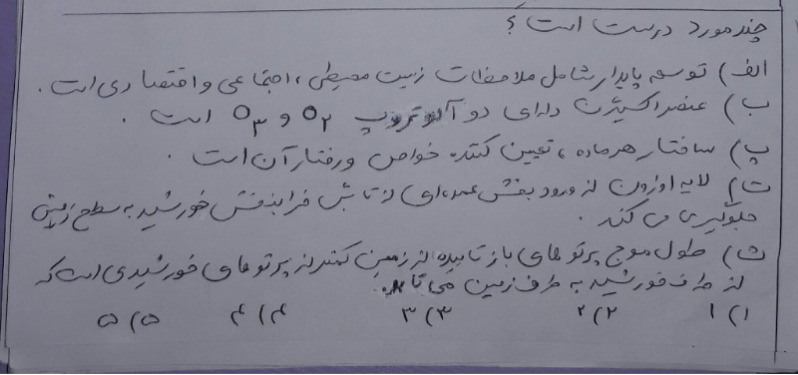 چند مورد درست است؟
الف) توسعه پایدار شامل ملاحظات زیست محیطی، اجتماعی و اقتصادی است.
ب) عنصر اکسیژن دارای دو آلوتروپ O۲ و O۳ است.
پ) ساختار هر ماده، تعیین کننده خواص و رفتار آن است.
ت) لایه اوزون از ورود بخش عمده‌ای از تابش فرابنفش خورشید به سطح زمین
جلوگیری می کند.
ث) طول موج پرتوهای بازتابیده از زمین کمتر از پرتوهای خورشیدی است که
از طرف خورشید به طرف زمین می تابد.
۱) ۱ ۲) ۲ ۳) ۳ ۴) ۴ ۵) ۵